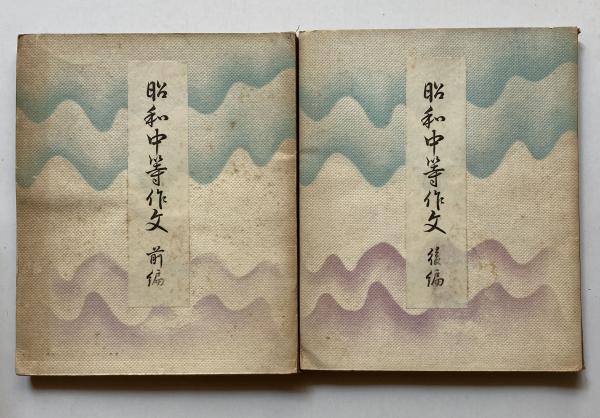 昭和中等作文 前編
昭和中等作文 後編